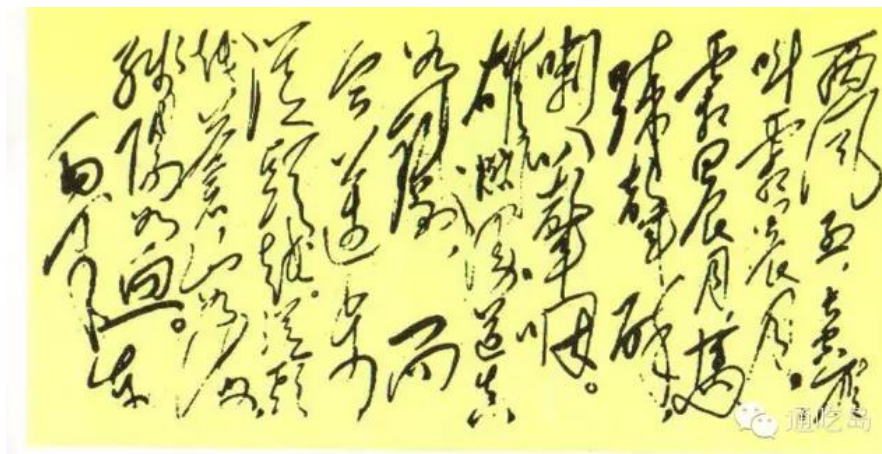 西風烈，長空雁
叫霜晨月。
霜晨月，馬
蹄聲碎，
喇叭聲咽。
雄關漫道真
如鐵，而
今邁步
從頭越。從頭
越，蒼山如海，
殘陽如血。
通吃岛